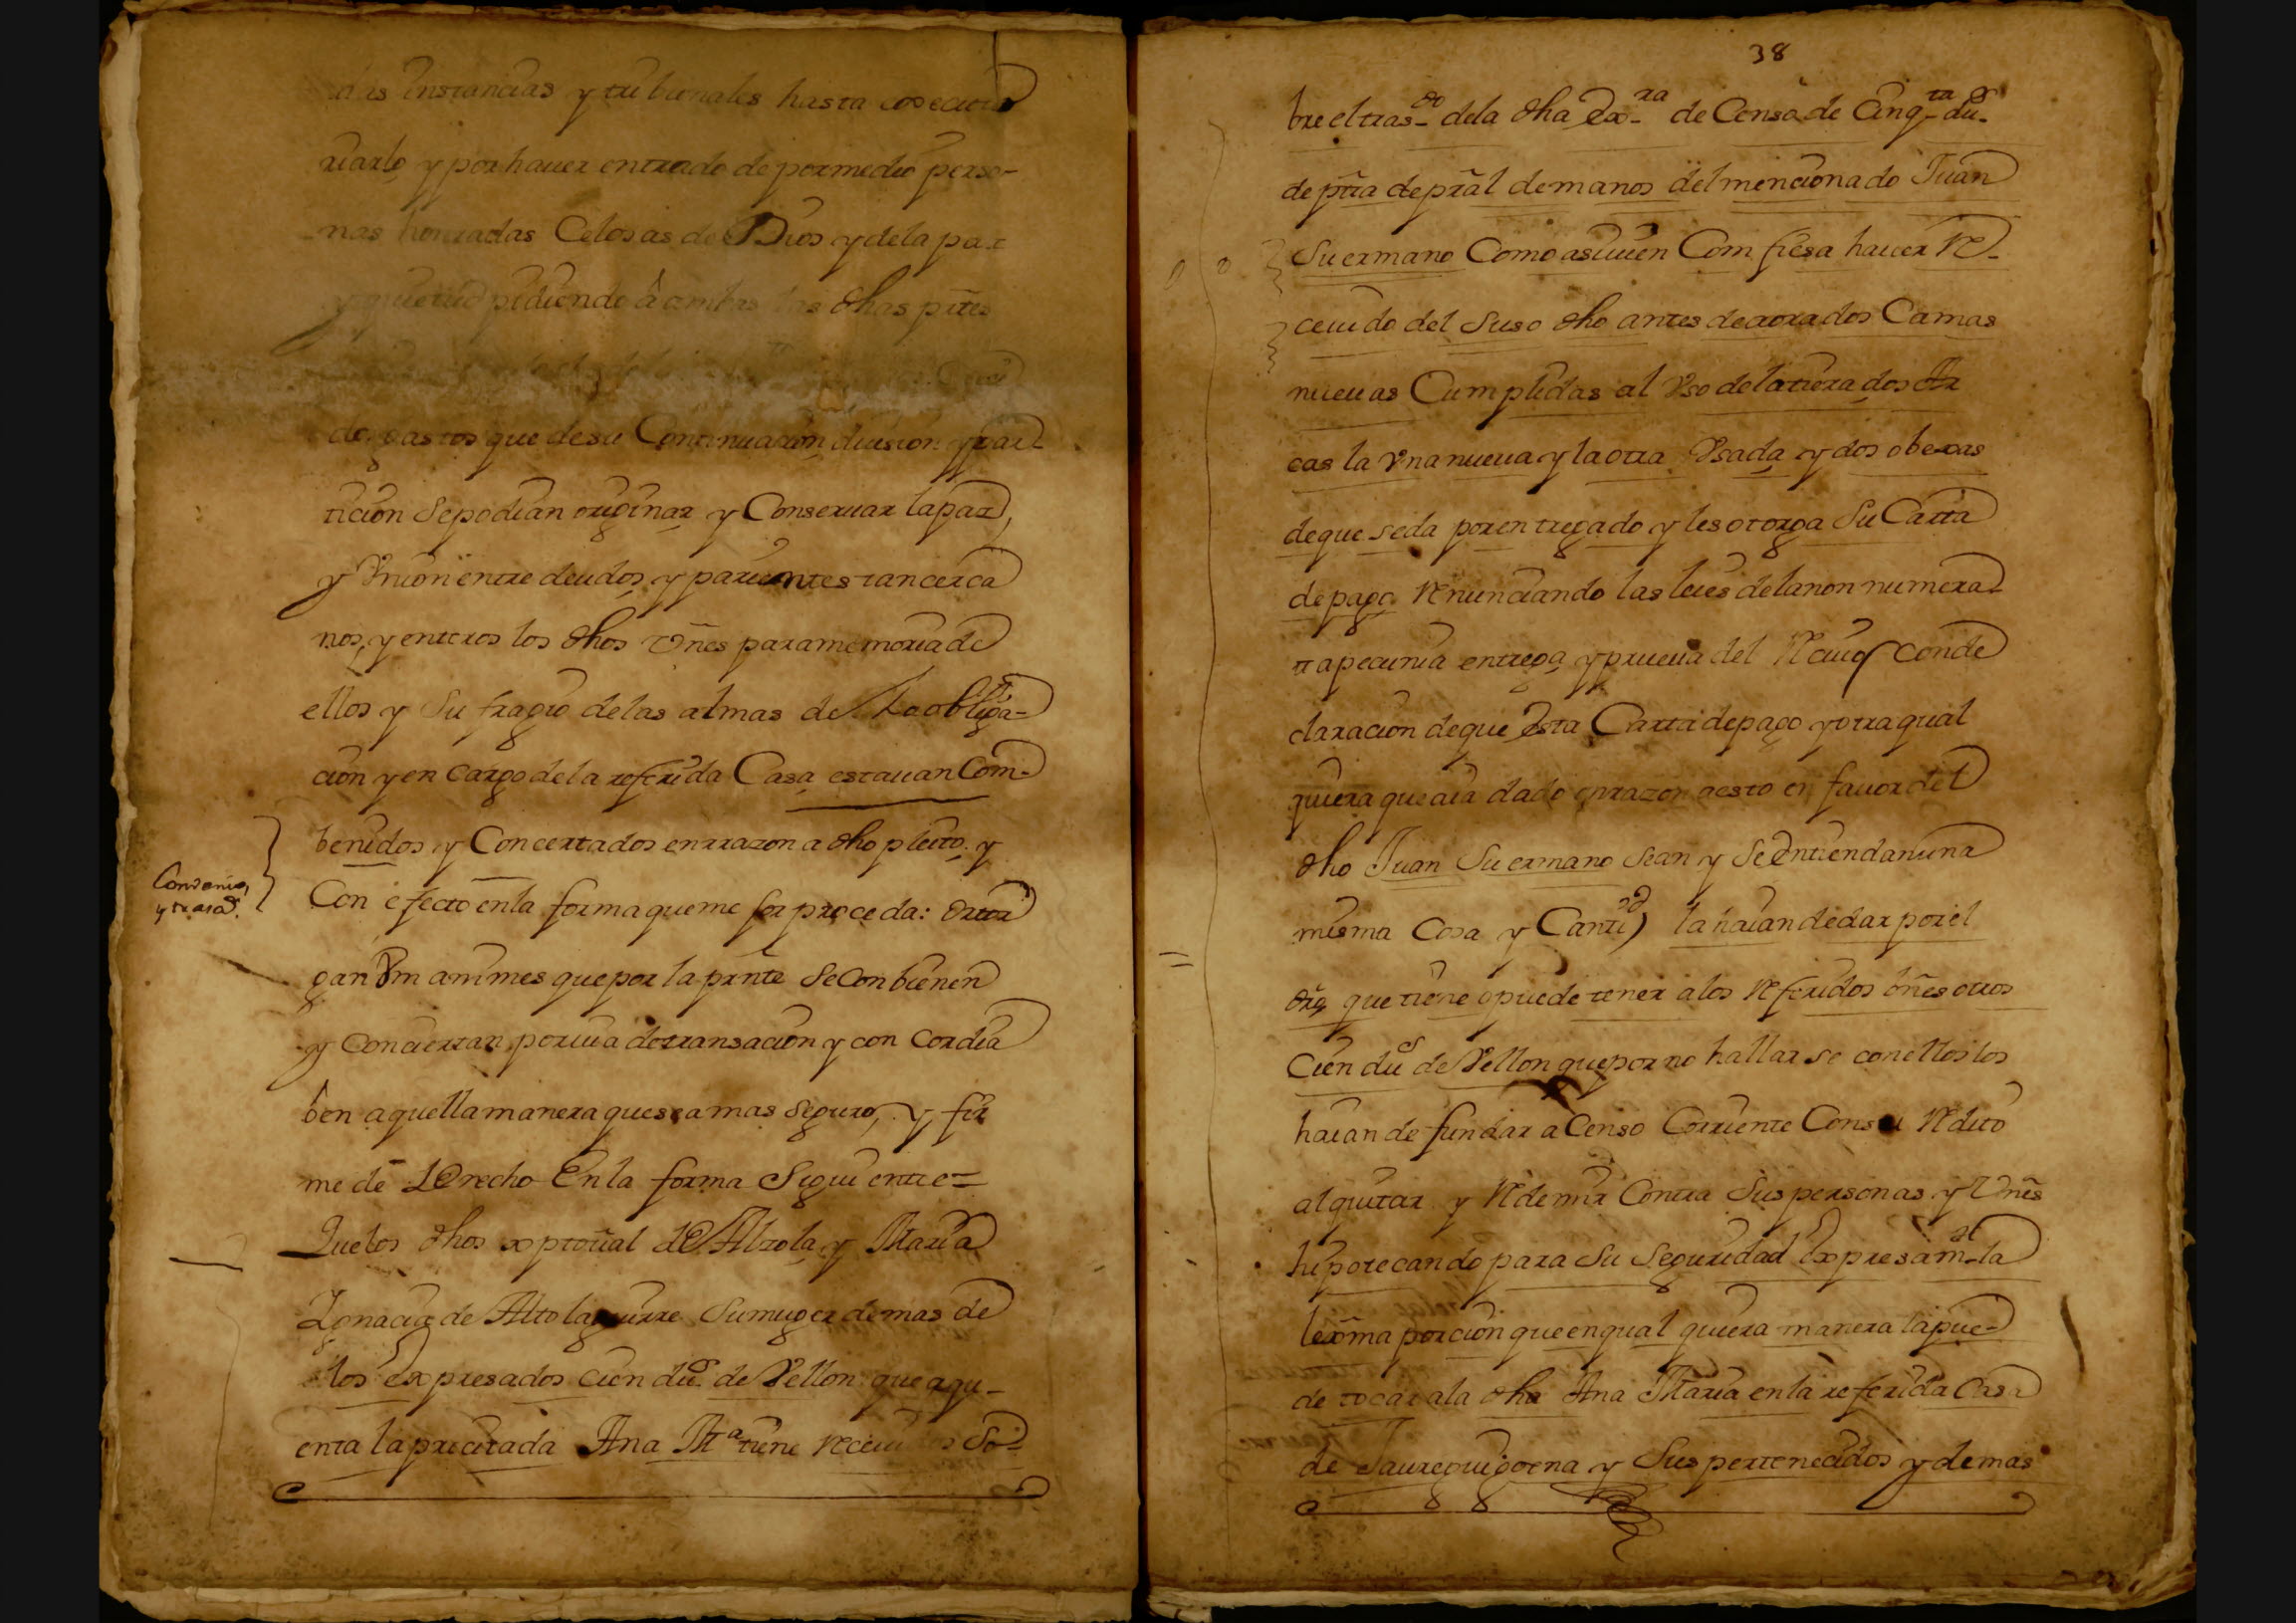 das instancias y tribunales hasta executo
riarlo y por hauer entrado de por medio perso-
nas honrradas Celosas de Dios y de la paz
y quietud pidiendo â ambas las dhas ptes
de gastos que de su Continuacion diuision y part
ticion Se podian originar y Conseruar la paz,
y Vnion entre deudos, y parientes tan cerca
nos, y enteros los dhos vñes para memoria de
ellos y Sufragio de las almas de la obliga-
cion y en cargo de la referida Casa estauan Com-
benidos y Concertados en rrazon a dho pleito y
Conuenio,
y trasaⁿ.
Con efecto en la forma que me for proceda: Otor
gan Vm animes que por la prnte Se Conbienen
y Conciertan por via de transacion y con cordia
ô en aquella manera que sea mas Seguro, y fir
me de Derecho En la forma Siguiente=
Que los dhos xptoual de Alzola, y Maria
Ignacia de Altolaguirre Su muger demas de
los Expresados cien duˢ de Vellon que aqu-
enta la precitada Ana Mᵃ tiene Receuidos So-
38
bre el trasᵈᵒ de la dha Exᵣᵃ de Censo de Cinqᵗᵃ duˢ
de pta de pral de manos del mencionado Juan
Su ermano Como asiuien Com fiesa hauer Re-
ceuido del Suso dho antes de aora dos Camas
nueuas Cumplidas al Vso de la tierra dos Ar
cas la Vna nueua y la otra Vsada y dos obexas
de que se da por entregado y les otorga Su Carta
de pago Renunciando las leies de la non numera
ta pecunia entrega, y prueua del Reciuo y con de
claracion de que Esta Carta de pago y otra qual
quiera que aia dado en razon a esto en fauor del
dho Juan Su ermano Sean y Se Entiendan una
misma Cosa y Cantiᵈ) la haian de dar por el
dro que tiene o puede tener a los Referidos bñes otros
Cien duˢ de Vellon que por no hallar se con ellos los
haian de fundar a Censo Corriente Con su Redito
al quitar y Redemir Contra Sus personas y Vnes
hipotecando para Su Seguridad Expresamᵗᵉ la
lexma porcion que en qual quiera manera la pue-
de tocar a la dha Ana Maria en la referida Casa
de Jaureguigoena y Sus pertenecidos y demas